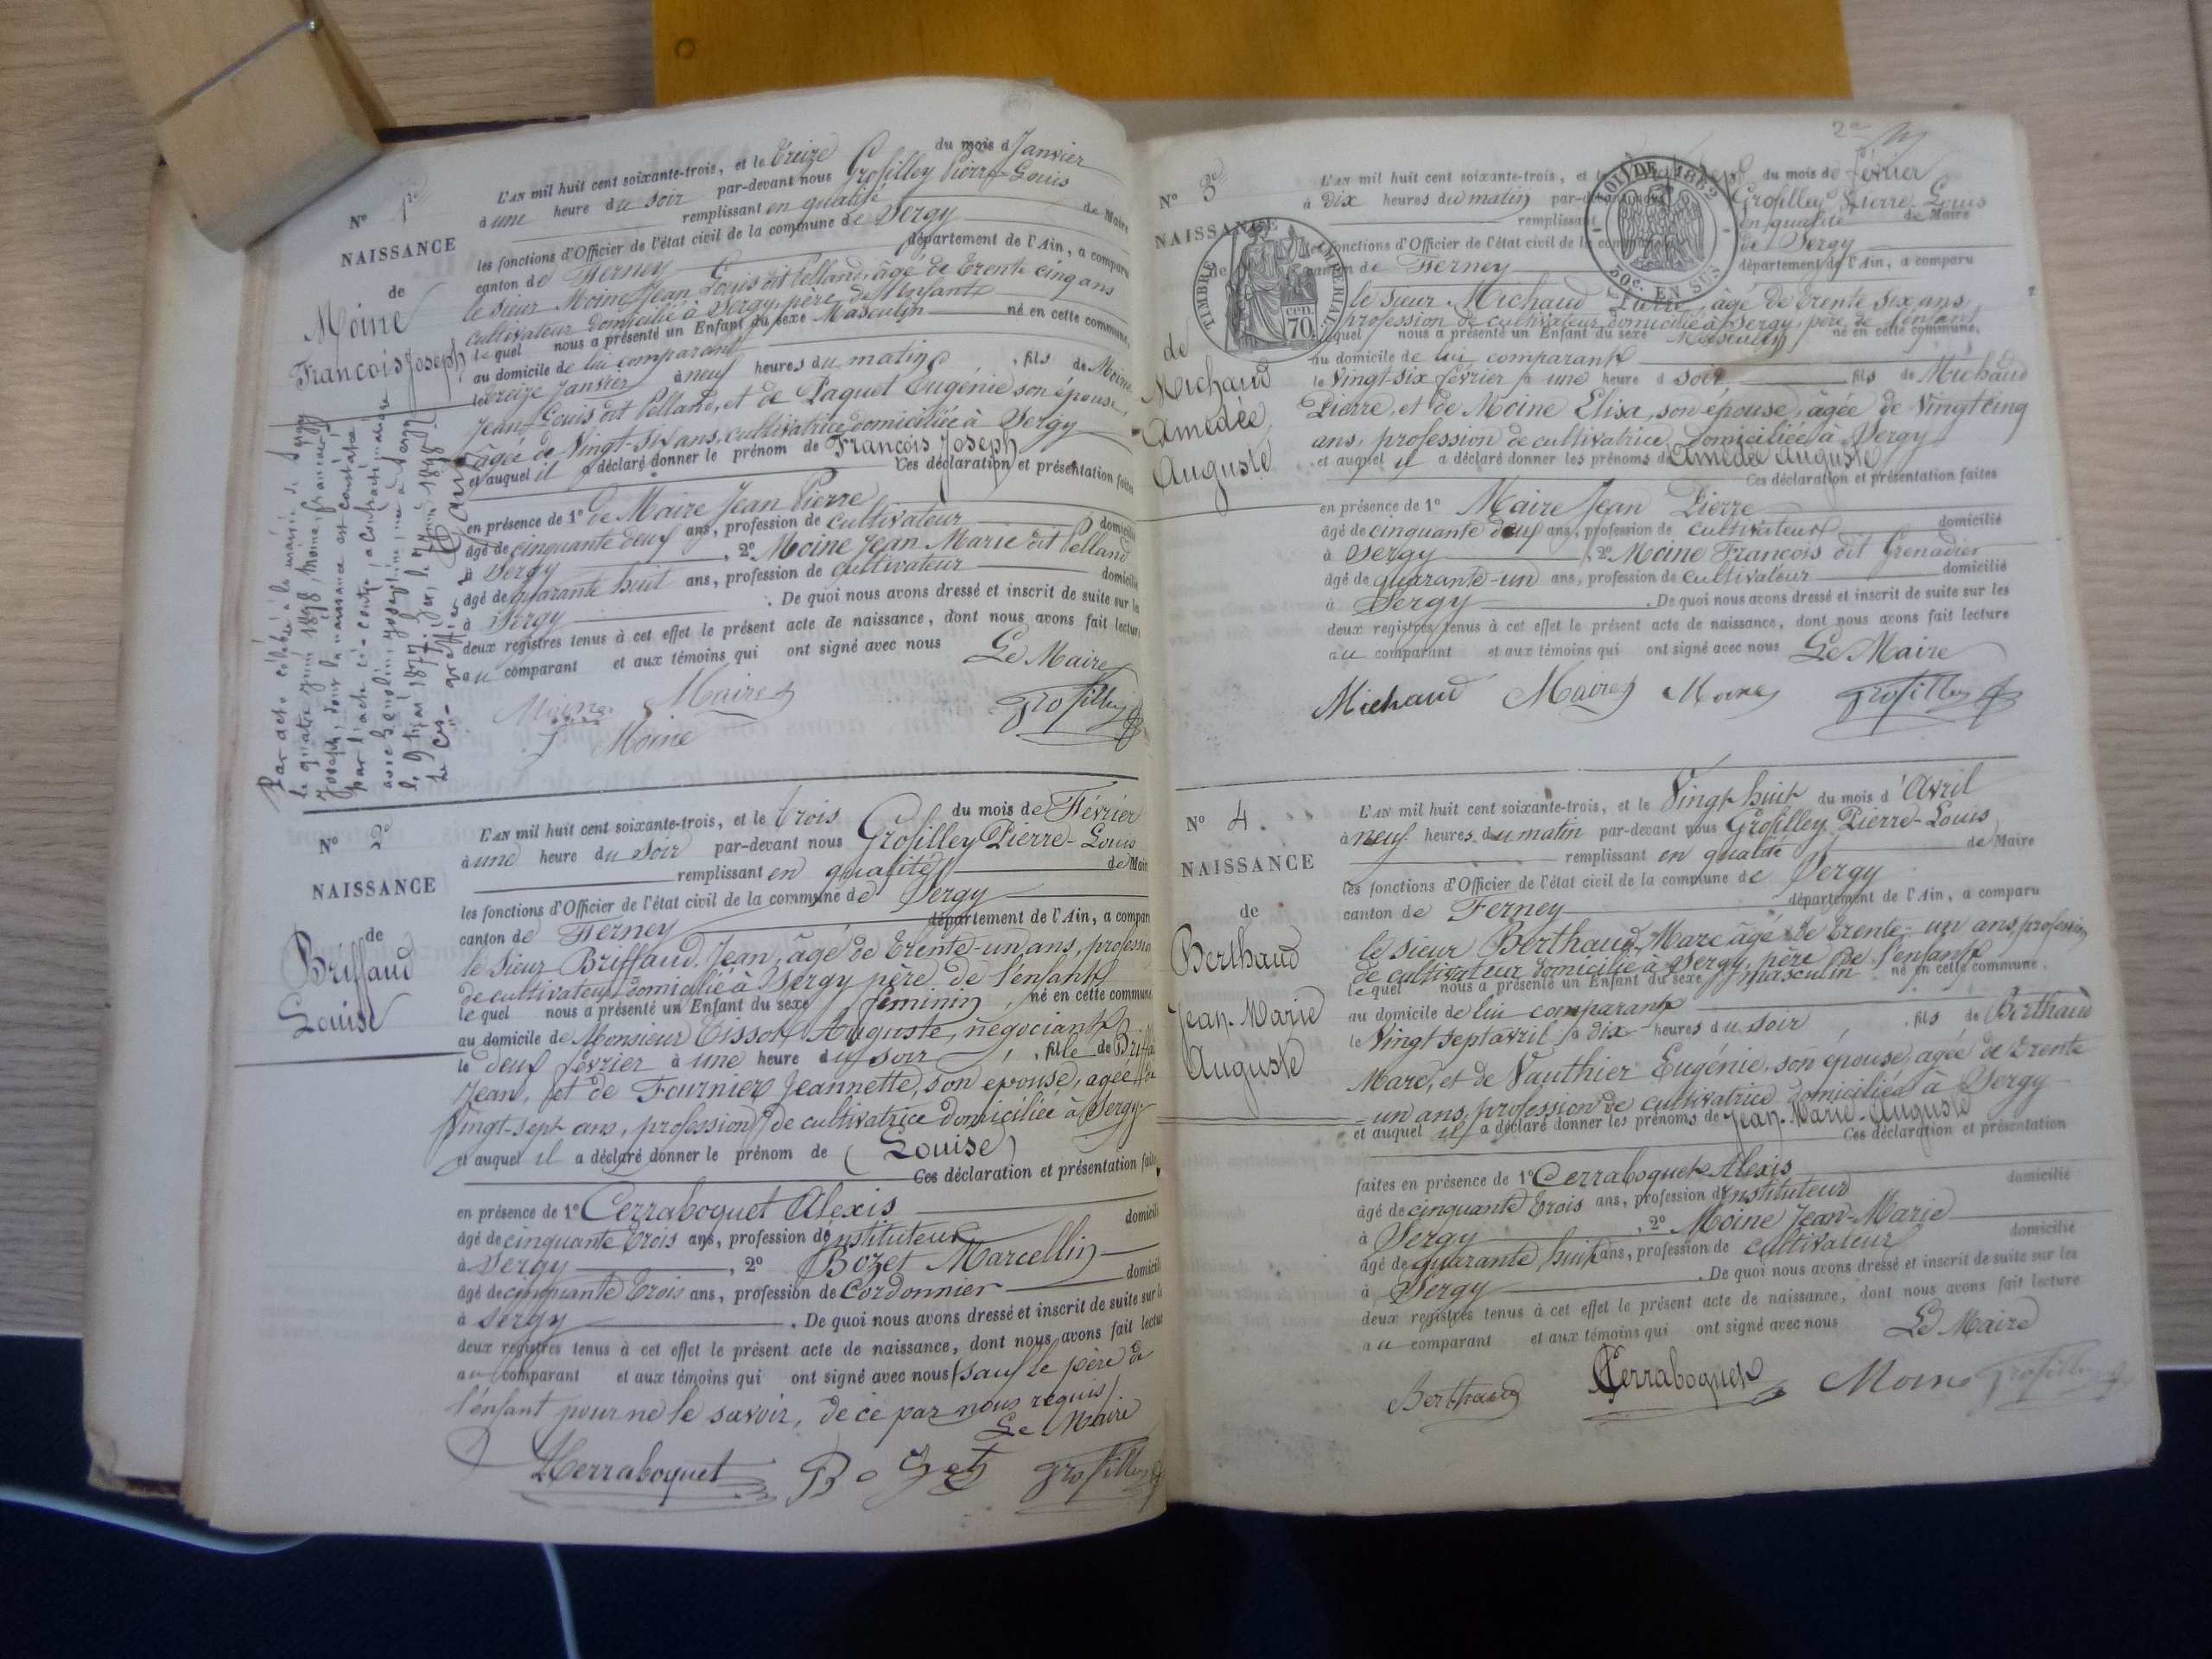 Nº 1er
NAISSANCE
de
Moine
François Joseph
L'AN mil huit cent soixante-trois, et le treize du mois d Janvier
à une heure du soir par-devant nous Grosfilley Pierre-Louis
remplissant en qualité de Maire
les fonctions d'Officier de l'état civil de la commune de Sergy
canton de Ferney département de l'Ain, a comparu
le sieur Moine Jean Louis dit Pelland, âgé de trente cinq ans
cultivateur domicilié à Sergy, père de l'enfant
lequel nous a présenté un Enfant du sexe Masculin né en cette commune,
au domicile de lui comparant
le treize Janvier à neuf heures du matin, fils de Moine
Jean Louis dit Pelland, et de Paquet Eugénie son épouse,
âgée de Vingt-six ans, cultivatrice domiciliée à Sergy
et auquel il a déclaré donner le prénom de François Joseph
Ces déclaration et présentation faites
en présence de 1º de Maire Jean Pierre
âgé de cinquante deux ans, profession de cultivateur domicilié
à Sergy, 2º Moine Jean Marie dit Pelland
âgé de quarante huit ans, profession de cultivateur domicilié
à Sergy. De quoi nous avons dressé et inscrit de suite sur les
deux registres tenus à cet effet le présent acte de naissance, dont nous avons fait lecture
au comparant et aux témoins qui ont signé avec nous
Le Maire
Moine Maire
J Moine Grosfilley
Par acte célébré à la mairie de Sergy
le quatre juin 1898, Moine, françois
Joseph, dont la naissance est constatée
par l'acte ci-contre, a contracté mariage
avec
Nº 2e
NAISSANCE
de
Briffaud
Louise
L'AN mil huit cent soixante-trois, et le trois du mois de Février
à une heure du soir par-devant nous Grosfilley Pierre-Louis
remplissant en qualité de Maire
les fonctions d'Officier de l'état civil de la commune de Sergy
canton de Ferney département de l'Ain, a comparu
le sieur Briffaud Jean, âgé de trente-un ans, profession
de cultivateur domicilié à Sergy père de l'enfant
lequel nous a présenté un Enfant du sexe féminin, né en cette commune
au domicile de Monsieur Tissot Auguste, négociant
le deux février à une heure du soir, fille de Briffaud
Jean, et de Fournier Jeannette, son épouse, agée de
Vingt-sept ans, profession de cultivatrice domiciliée à Sergy
et auquel il a déclaré donner le prénom de Louise
Ces déclaration et présentation faites
en présence de 1º Cerraboquet Alexis domicilié
âgé de cinquante trois ans, profession de instituteur
à Sergy, 2º Bozet Marcellin
âgé de cinquante trois ans, profession de Cordonnier domicilié
à Sergy. De quoi nous avons dressé et inscrit de suite sur les
deux registres tenus à cet effet le présent acte de naissance, dont nous avons fait lecture
au comparant et aux témoins qui ont signé avec nous (sauf le père de
l'enfant pour ne le savoir, de ce par nous requis).
Le Maire
Cerraboquet Bozet Grosfilley
2e
Nº 3e
NAISSANCE
de
Michaud
Amedée
Auguste
TIMBRE IMPERIAL
70 cen.
LOI DE 1862
50c. EN SUS
L'AN mil huit cent soixante-trois, et le du mois de février
à dix heures du matin par-devant nous Grosfilley Pierre-Louis
remplissant en qualité de Maire
les fonctions d'Officier de l'état civil de la commune de Sergy
canton de Ferney département de l'Ain, a comparu
le sieur Michaud Pierre, âgé de trente six ans,
profession de cultivateur domicilié à Sergy, père de l'enfant
lequel nous a présenté un Enfant du sexe Masculin né en cette commune.
au domicile de lui comparant
le Vingt-six février à une heure d soir fils de Michaud
Pierre, et de Moine Elisa, son épouse, âgée de Vingt cinq
ans, profession de cultivatrice, domiciliée à Sergy
et auquel il a déclaré donner les prénoms de Amedée Auguste
Ces déclaration et présentation faites
en présence de 1º Maire Jean Pierre
âgé de cinquante deux ans, profession de cultivateur domicilié
à Sergy, 2º Moine François dit Grenadier
âgé de quarante-un ans, profession de cultivateur domicilié
à Sergy. De quoi nous avons dressé et inscrit de suite sur les
deux registres tenus à cet effet le présent acte de naissance, dont nous avons fait lecture
au comparant et aux témoins qui ont signé avec nous Le Maire
Michaud Maire Moine Grosfilley
Nº 4.
NAISSANCE
de
Berthaud
Jean-Marie
Auguste
L'AN mil huit cent soixante-trois, et le Vingt huit du mois d'Avril
à neuf heures du matin par-devant nous Grosfilley Pierre-Louis
remplissant en qualité de Maire
les fonctions d'Officier de l'état civil de la commune de Sergy
canton de Ferney département de l'Ain, a comparu
le sieur Berthaud Marc âgé de trente-un ans, profession
de cultivateur domicilié à Sergy, père de l'enfant
lequel nous a présenté un Enfant du sexe masculin né en cette commune.
au domicile de lui comparant
le Vingt sept avril à dix heures du soir, fils de Berthaud
Marc, et de Vauthier Eugénie, son épouse, agée de trente
-un ans, profession de cultivatrice domiciliée à Sergy
et auquel il a déclaré donner les prénoms de Jean-Marie-Auguste
Ces déclaration et présentation
faites en présence de 1º Cerraboquet Alexis domicilié
âgé de cinquante trois ans, profession d'instituteur
à Sergy, 2º Moine Jean-Marie domicilié
âgé de quarante huit ans, profession de cultivateur
à Sergy. De quoi nous avons dressé et inscrit de suite sur les
deux registres tenus à cet effet le présent acte de naissance, dont nous avons fait lecture
au comparant et aux témoins qui ont signé avec nous Le Maire
Berthaud Cerraboquet Moine Grosfilley